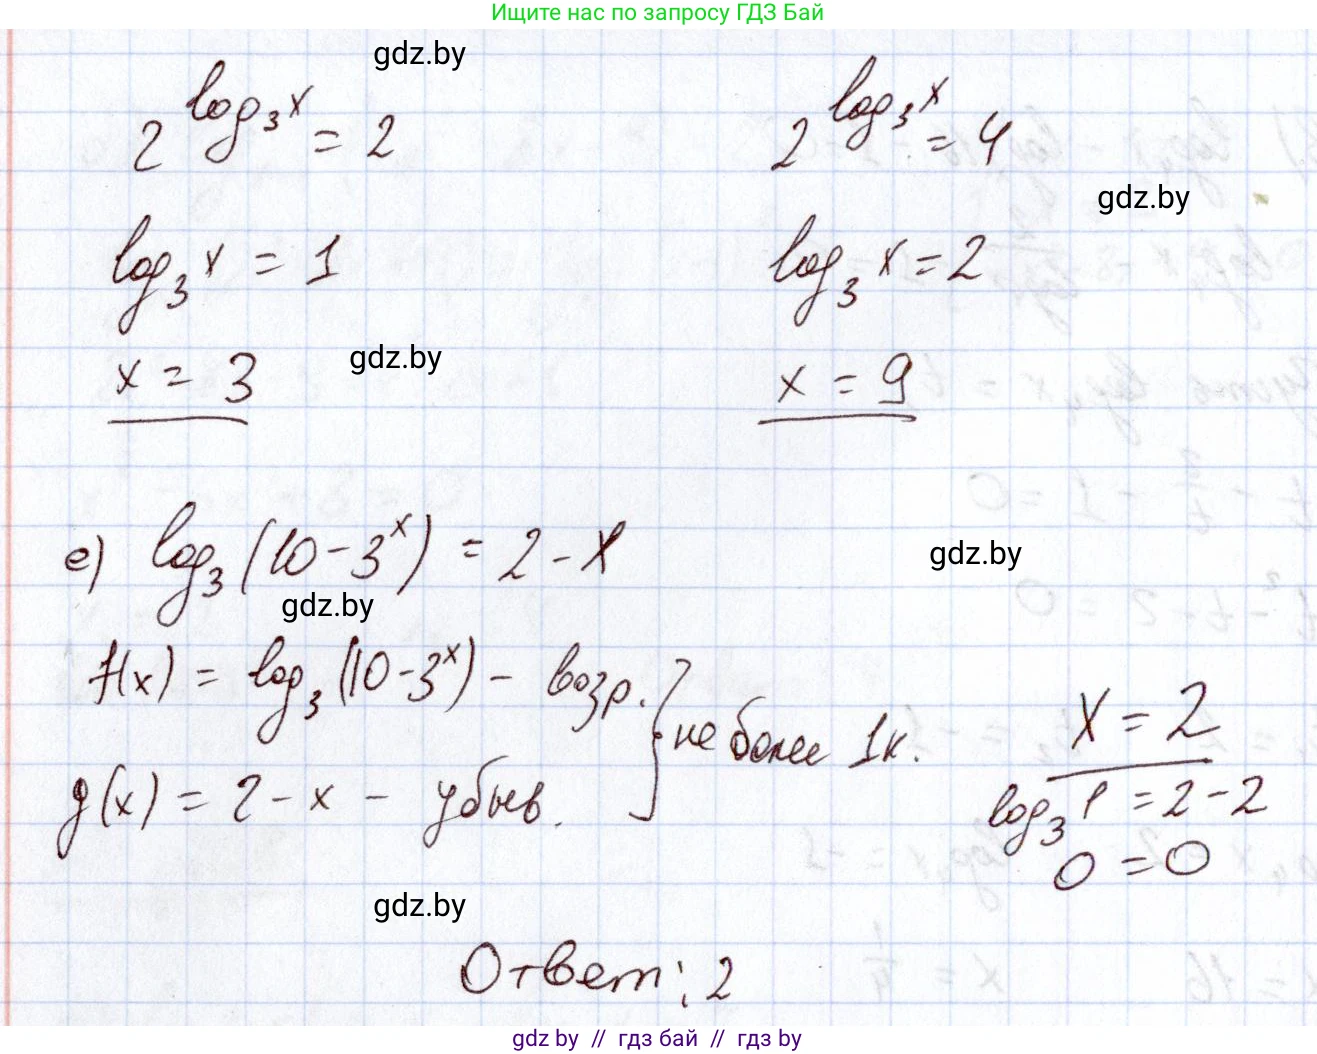 Ищите нас по запросу ГДЗ Бай
gdz.by
2^(log₃x) = 2
2^(log₃x) = 4
gdz.by
log₃x = 1
log₃x = 2
gdz.by
x = 3
x = 9
е) log₃(10 - 3^x) = 2 - x
gdz.by
gdz.by
f(x) = log₃(10 - 3^x) - возр.
g(x) = 2 - x - убыв.
} не более 1к.
x = 2
log₃1 = 2 - 2
0 = 0
gdz.by
Ответ: 2
gdz.by // гдз бай // гдз by